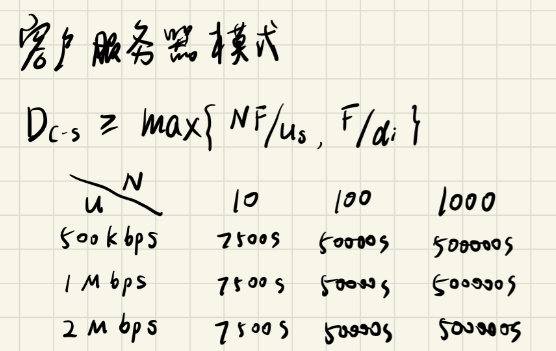 客户服务器模式
D_{c-s} ≥ max{ NF/u_s, F/d_i }
u \ N 10 100 1000
500kbps 7500s 50000s 500000s
1Mbps 7500s 50000s 500000s
2Mbps 7500s 50000s 500000s